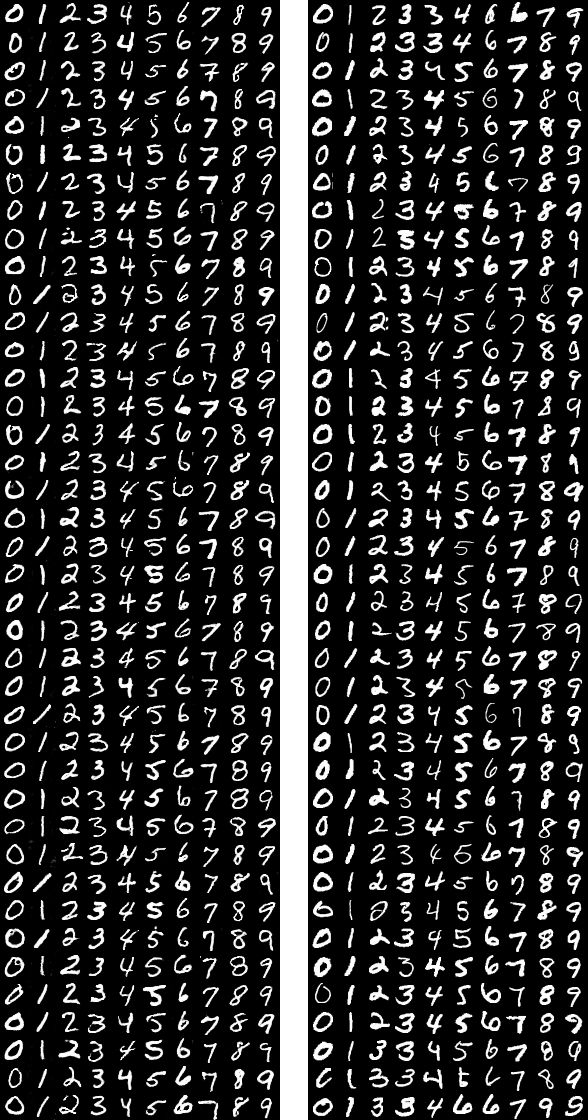 0 1 2 3 4 5 6 7 8 9
0 1 2 3 4 5 6 7 8 9
0 1 2 3 4 5 6 7 8 9
0 1 2 3 4 5 6 7 8 9
0 1 2 3 4 5 6 7 8 9
0 1 2 3 4 5 6 7 8 9
0 1 2 3 4 5 6 7 8 9
0 1 2 3 4 5 6 7 8 9
0 1 2 3 4 5 6 7 8 9
0 1 2 3 4 5 6 7 8 9
0 1 2 3 4 5 6 7 8 9
0 1 2 3 4 5 6 7 8 9
0 1 2 3 4 5 6 7 8 9
0 1 2 3 4 5 6 7 8 9
0 1 2 3 4 5 6 7 8 9
0 1 2 3 4 5 6 7 8 9
0 1 2 3 4 5 6 7 8 9
0 1 2 3 4 5 6 7 8 9
0 1 2 3 4 5 6 7 8 9
0 1 2 3 4 5 6 7 8 9
0 1 2 3 4 5 6 7 8 9
0 1 2 3 4 5 6 7 8 9
0 1 2 3 4 5 6 7 8 9
0 1 2 3 4 5 6 7 8 9
0 1 2 3 4 5 6 7 8 9
0 1 2 3 4 5 6 7 8 9
0 1 2 3 4 5 6 7 8 9
0 1 2 3 4 5 6 7 8 9
0 1 2 3 4 5 6 7 8 9
0 1 2 3 4 5 6 7 8 9
0 1 2 3 4 5 6 7 8 9
0 1 2 3 4 5 6 7 8 9
0 1 2 3 4 5 6 7 8 9
0 1 2 3 4 5 6 7 8 9
0 1 2 3 4 5 6 7 8 9
0 1 2 3 4 5 6 7 8 9
0 1 2 3 4 5 6 7 8 9
0 1 2 3 4 5 6 7 8 9
0 1 2 3 4 5 6 7 8 9
0 1 2 3 4 5 6 7 8 9
0 1 2 3 3 4 6 6 7 9
0 1 2 3 3 4 6 7 8 9
0 1 2 3 4 5 6 7 8 9
0 1 2 3 4 5 6 7 8 9
0 1 2 3 4 5 6 7 8 9
0 1 2 3 4 5 6 7 8 9
0 1 2 3 4 5 6 7 8 9
0 1 2 3 4 5 6 7 8 9
0 1 2 3 4 5 6 7 8 9
0 1 2 3 4 5 6 7 8 9
0 1 2 3 4 5 6 7 8 9
0 1 2 3 4 5 6 7 8 9
0 1 2 3 4 5 6 7 8 9
0 1 2 3 4 5 6 7 8 9
0 1 2 3 4 5 6 7 8 9
0 1 2 3 4 5 6 7 8 9
0 1 2 3 4 5 6 7 8 9
0 1 2 3 4 5 6 7 8 9
0 1 2 3 4 5 6 7 8 9
0 1 2 3 4 5 6 7 8 9
0 1 2 3 4 5 6 7 8 9
0 1 2 3 4 5 6 7 8 9
0 1 2 3 4 5 6 7 8 9
0 1 2 3 4 5 6 7 8 9
0 1 2 3 4 5 6 7 8 9
0 1 2 3 4 5 6 7 8 9
0 1 2 3 4 5 6 7 8 9
0 1 2 3 4 5 6 7 8 9
0 1 2 3 4 5 6 7 8 9
0 1 2 3 4 5 6 7 8 9
0 1 2 3 4 6 6 7 8 9
0 1 2 3 4 5 6 7 8 9
6 1 2 3 4 5 6 7 8 9
0 1 2 3 4 5 6 7 8 9
0 1 2 3 4 5 6 7 8 9
0 1 2 3 4 5 6 7 8 9
0 1 2 3 4 5 6 7 8 9
0 1 3 3 4 5 6 7 8 0
6 1 3 3 4 6 6 7 8 9
0 1 3 8 4 6 6 7 9 5